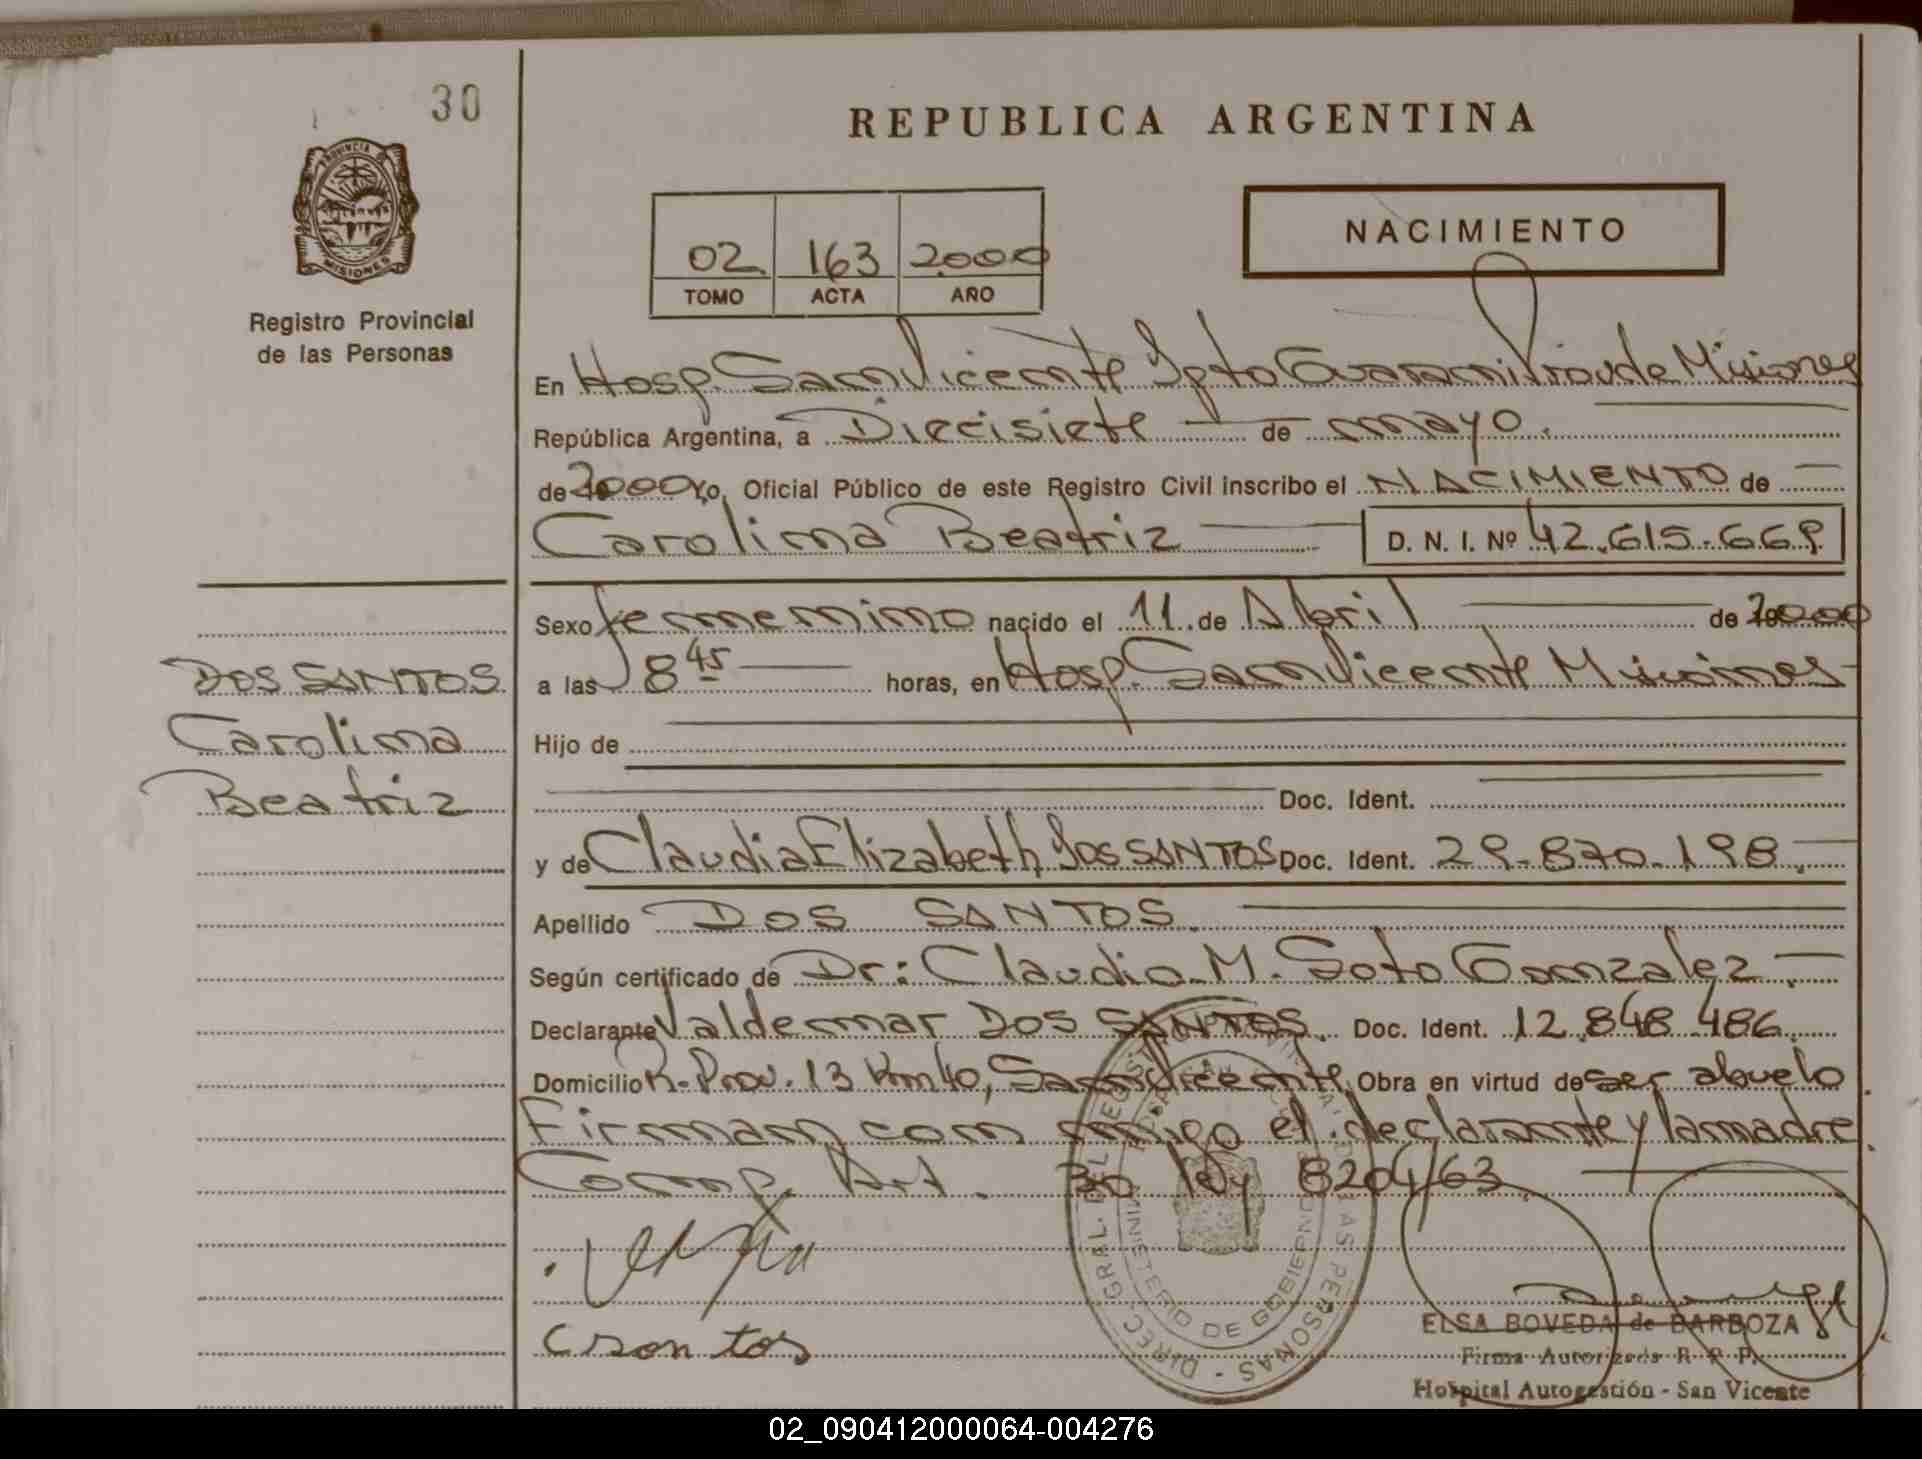 30
REPUBLICA ARGENTINA
PROVINCIA DE
MISIONES
NACIMIENTO
02 163 2000
TOMO ACTA AÑO
Registro Provincial
de las Personas
En Hosp. San Vicente Dpto Guarani Prov de Misiones
República Argentina, a Diecisiete de mayo.
de 2000 Yo, Oficial Público de este Registro Civil inscribo el NACIMIENTO de
Carolina Beatriz D. N. I. Nº 42.615.669
Sexo femenino nacido el 11 de Abril de 2000
a las 8 45 horas, en Hosp. San Vicente Misiones
Hijo de
Doc. Ident.
y de Claudia Elizabeth DOS SANTOS Doc. Ident. 29.870.198
Apellido DOS SANTOS
Según certificado de Dr: Claudio M. Soto Gonzalez
Declarante Valdemar DOS SANTOS Doc. Ident. 12.848.486
Domicilio R. Prov. 13 Km 40, San Vicente Obra en virtud de ser abuelo
Firman con migo el declarante y la madre
Comp. Art. 30 ley 8204/63
DOS SANTOS
Carolina
Beatriz
DIREC. GRAL. DEL REGISTRO PROVINCIAL DE LAS PERSONAS
MINISTERIO DE GOBIERNO
Csantos
ELSA BOVEDA de BARBOZA
Firma Autorizada R. P. P.
Hospital Autogestión - San Vicente
02_090412000064-004276